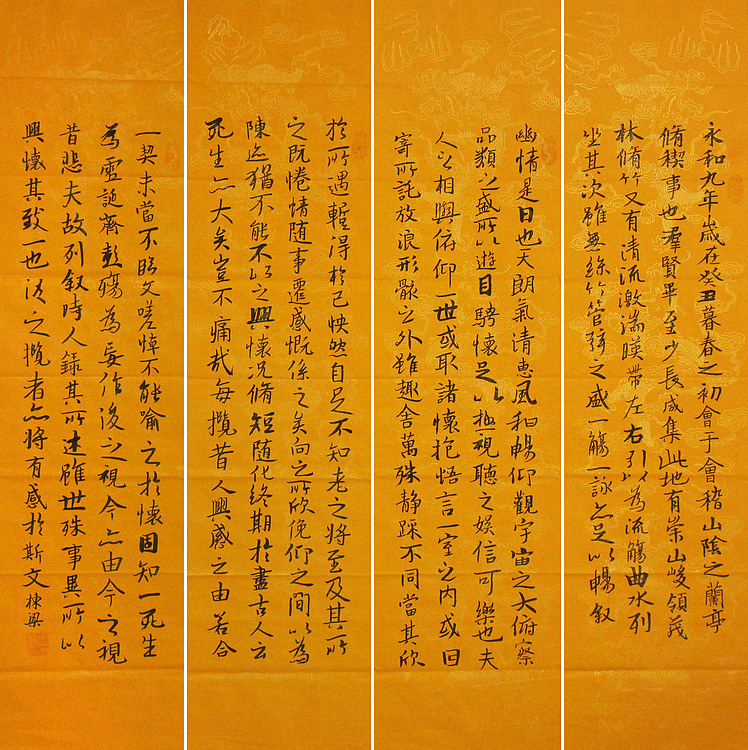 永和九年歲在癸丑暮春之初會于會稽山陰之蘭亭
脩禊事也羣賢畢至少長咸集此地有崇山峻領茂
林脩竹又有清流激湍暎帶左右引以為流觴曲水列
坐其次雖無絲竹管弦之盛一觴一詠亦足以暢敘
幽情是日也天朗氣清惠風和暢仰觀宇宙之大俯察
品類之盛所以遊目騁懷足以極視聽之娛信可樂也夫
人之相與俯仰一世或取諸懷抱悟言一室之內或因
寄所託放浪形骸之外雖趣舍萬殊静躁不同當其欣
於所遇蹔得於己怏然自足不知老之將至及其所
之既惓情随事遷感慨係之矣向之所欣俛仰之間以為
陳迹猶不能不以之興懷況脩短随化終期於盡古人云
死生亦大矣豈不痛哉每攬昔人興感之由若合
一契未嘗不臨文嗟悼不能喻之於懷固知一死生
為虛誕齊彭殤為妄作後之視今亦由今之視
昔悲夫故列叙時人録其所述雖世殊事異所以
興懷其致一也後之攬者亦將有感於斯文 棟梁